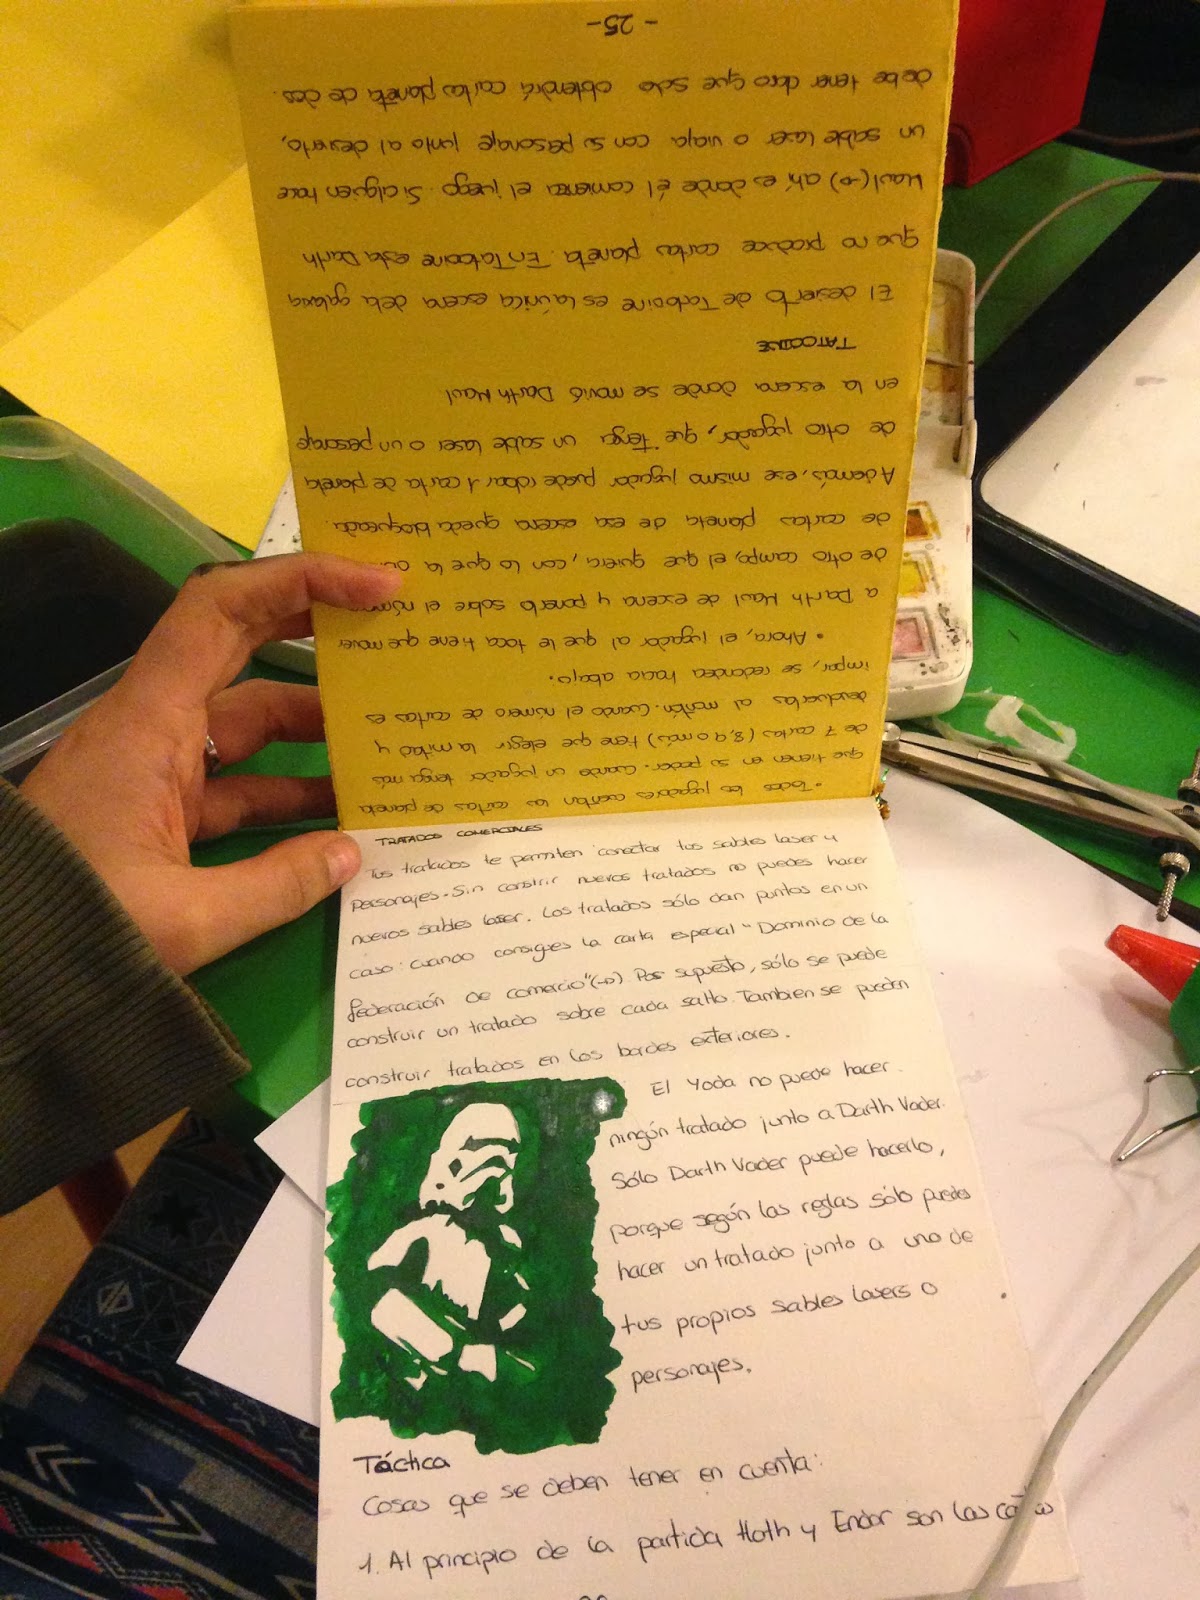 • Todos los jugadores cuentan las cartas de planeta
que tienen en su poder. Cuando un jugador tenga más
de 7 cartas (8, 9 o más) tiene que elegir la mitad y
devolverlas al montón. Cuando el número de cartas es
impar, se redondea hacia abajo.
• Ahora, el jugador al que le toca tiene que mover
a Darth Maul de escena y ponerlo sobre el
de otro campo, el que quiera, con lo que la
de cartas planeta de esa escena queda bloqueada.
Además, ese mismo jugador puede robar 1 carta de planeta
de otro jugador, que tenga un sable laser o un personaje
en la escena donde se movió Darth Maul
TATOOINE
El desierto de Tatooine es la única escena dela galaxia
que no produce cartas planeta. En Tatooine esta Darth
Maul (→) ahí es donde él comienza el juego. Si alguien hace
un sable laser o viaja con su personaje junto al desierto,
debe tener claro que solo obtendrá cartas planeta de dos.
- 25 -
TRATADOS COMERCIALES
Tus tratados te permiten conectar tus sables laser y
personajes. Sin constrir nuevos tratados no puedes hacer
nuevos sables laser. Los tratados sólo dan puntos en un
caso: cuando consigues la carta especial "Dominio de la
federación de comercio" (→) Por supuesto, sólo se puede
construir un tratado sobre cada salto. Tambien se pueden
construir tratados en los bordes exteriores.
El Yoda no puede hacer
ningún tratado junto a Darth Vader.
Sólo Darth Vader puede hacerlo,
porque según las reglas sólo puedes
hacer un tratado junto a uno de
tus propios sables lasers o
personajes.
Táctica
Cosas que se deben tener en cuenta:
1. Al principio de la partida Hoth y Endor son las cartas